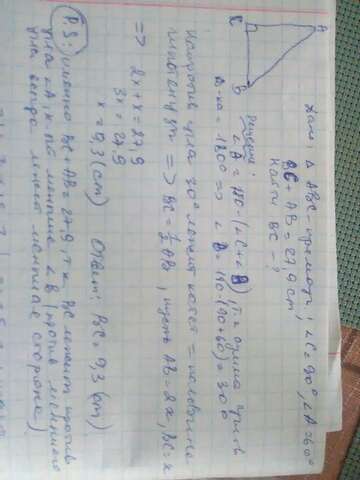 Дано: Δ ABC - прямоуг; ∠C = 90°, ∠A = 60°
BC + AB = 27,9 cm
Найти BC - ?
A
C
B
Решение:
∠A = 180 - (∠C + ∠B), т.к сумма углов
Δ-ка = 180° => ∠B = 180 - (90 + 60) = 30°
Напротив угла 30° лежит катет = половине
гипотенузы => BC = ½ AB, пусть AB = 2x, BC = x
=> 2x + x = 27,9
3x = 27,9
x = 9,3 (cm) Ответ: BC = 9,3 (cm)
P.S: именно BC + AB = 27,9 т.к. BC лежит против
угла ∠A, по меньше ∠B (против меньшего
угла всегда лежит меньшая сторона)